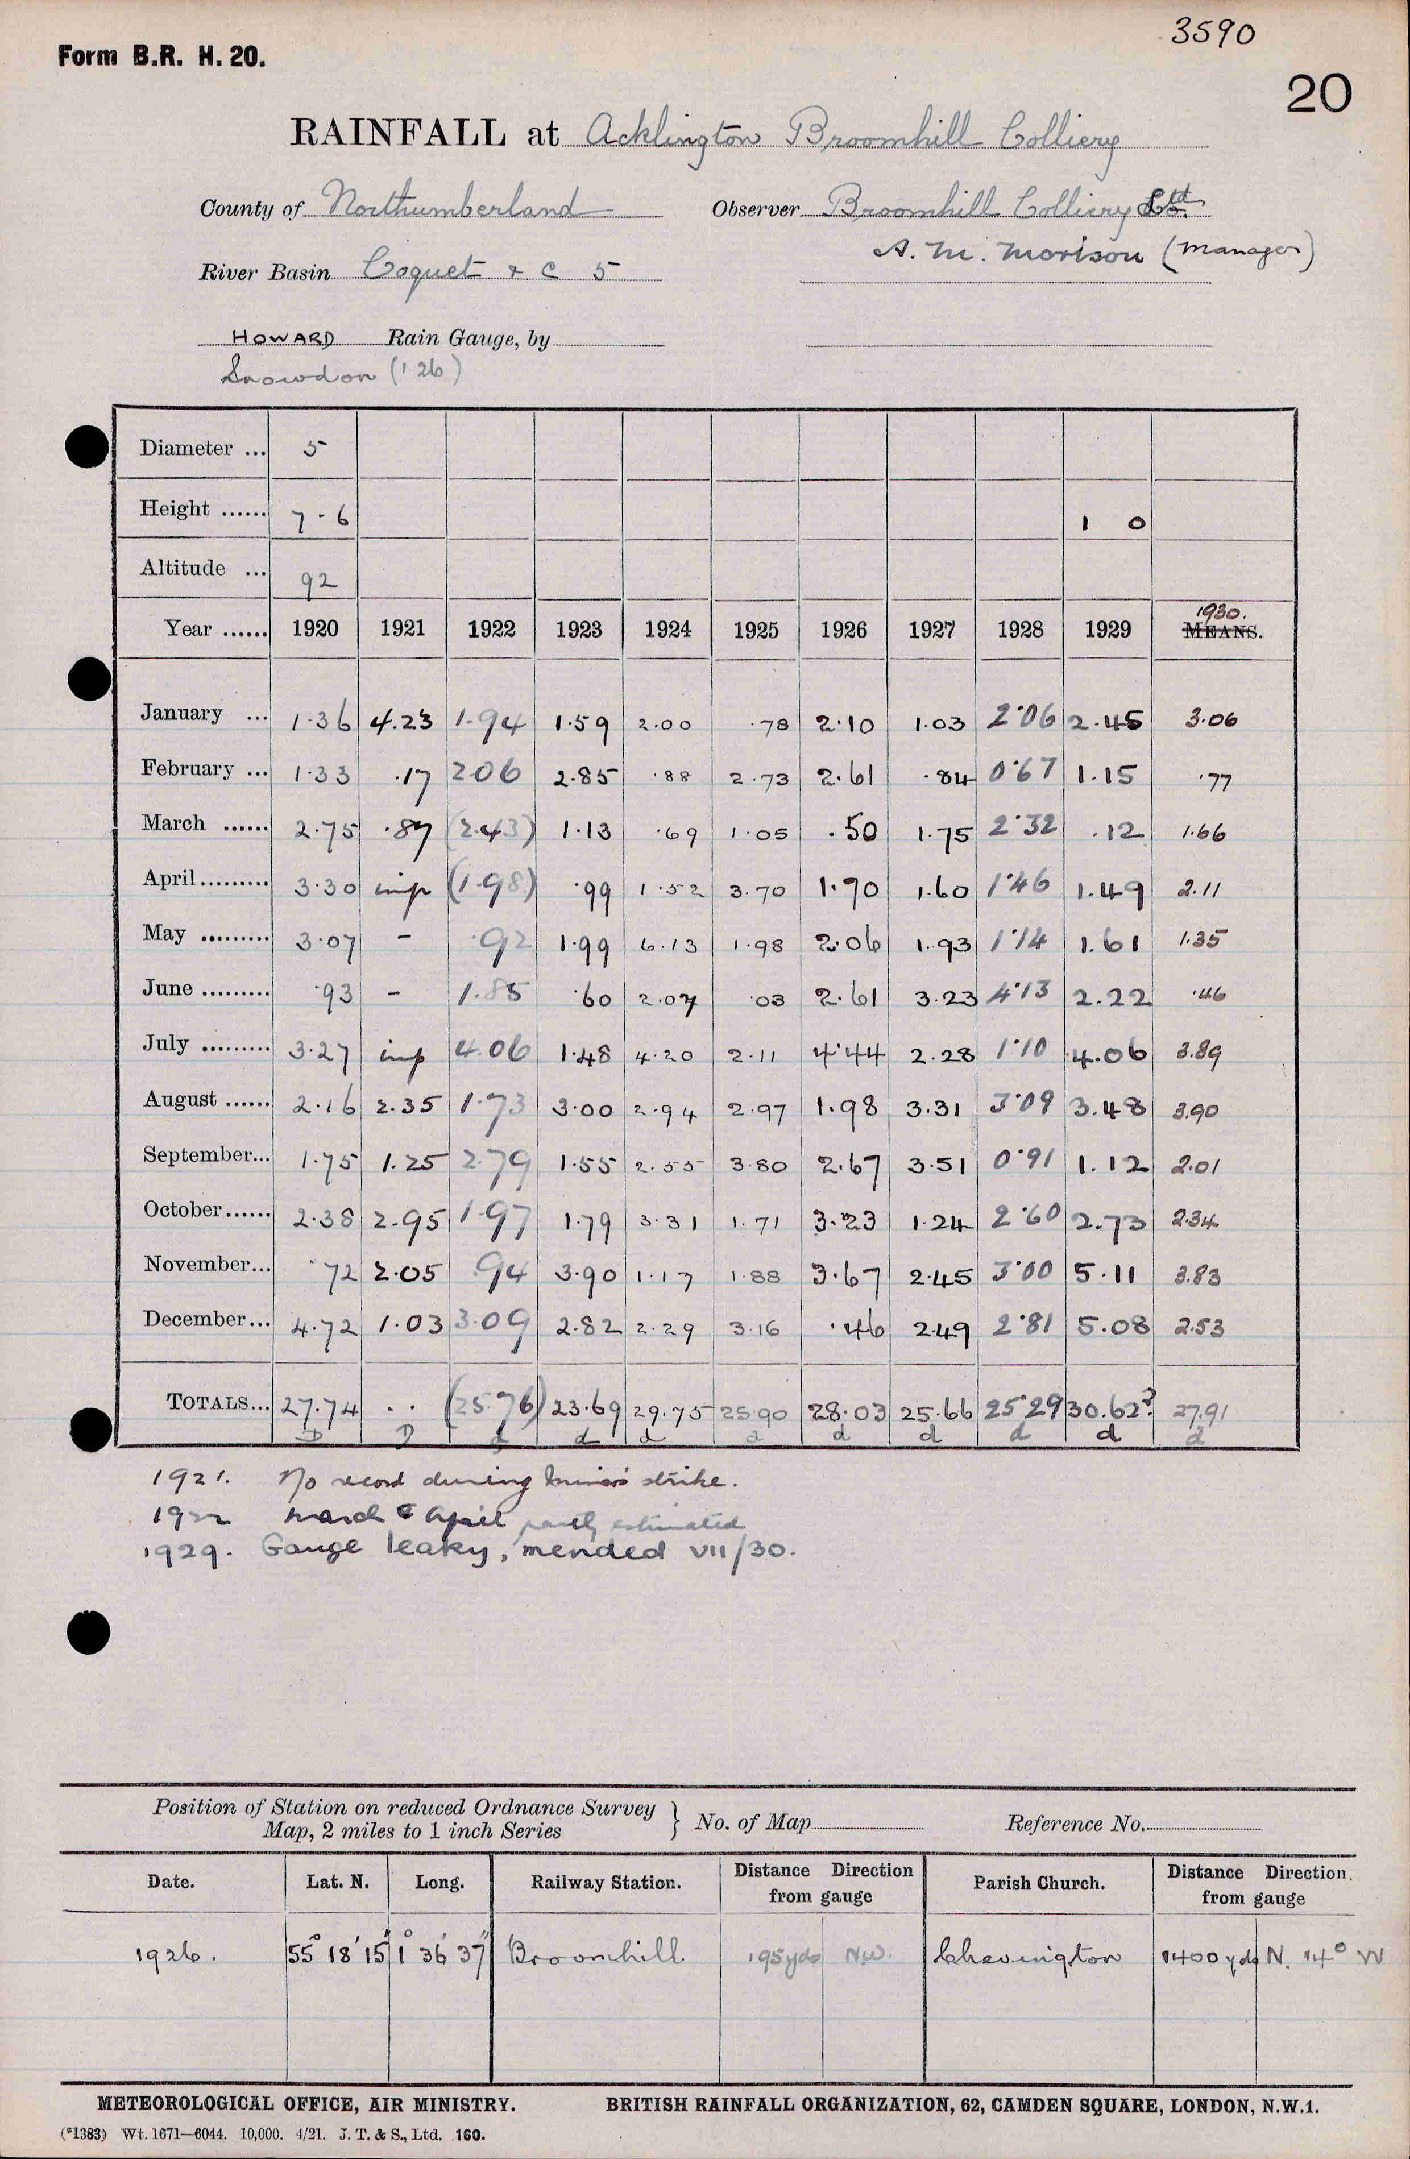 3590
Form B.R. H. 20.
20
RAINFALL at Acklington Broomhill Colliery
County of Northumberland Observer Broomhill Colliery Ltd.
A. M. Morison (Manager)
River Basin Coquet & C 5
HOWARD Rain Gauge, by
Snowdon ('26)
Diameter ... 5
Height ...... 7 - 6 1 0
Altitude ... 92
1930.
Year ...... 1920 1921 1922 1923 1924 1925 1926 1927 1928 1929 MEANS.
January ... 1.36 4.23 1.94 1.59 2.00 .78 2.10 1.03 2.06 2.45 3.06
February ... 1.33 .17 2.06 2.85 .88 2.73 2.61 .84 0.67 1.15 .77
March ...... 2.75 .87 (2.43) 1.13 .69 1.05 .50 1.75 2.32 .12 1.66
April......... 3.30 imp (1.98) .99 1.52 3.70 1.70 1.60 1.46 1.49 2.11
May ......... 3.07 - .92 1.99 6.13 1.98 2.06 1.93 1.14 1.61 1.35
June ......... .93 - 1.85 .60 2.07 .03 2.61 3.23 4.13 2.22 .46
July ......... 3.27 imp 4.06 1.48 4.20 2.11 4.44 2.28 1.10 4.06 3.89
August ...... 2.16 2.35 1.73 3.00 2.94 2.97 1.98 3.31 3.09 3.48 3.90
September... 1.75 1.25 2.79 1.55 2.55 3.80 2.67 3.51 0.91 1.12 2.01
October...... 2.38 2.95 1.97 1.79 3.31 1.71 3.23 1.24 2.60 2.73 2.34
November... .72 2.05 .94 3.90 1.17 1.88 3.67 2.45 3.00 5.11 3.83
December... 4.72 1.03 3.09 2.82 2.29 3.16 .46 2.49 2.81 5.08 2.53
TOTALS... 27.74 .. (25.76) 23.69 29.75 25.90 28.03 25.66 25.29 30.62? 27.91
D D d d d d d d d d d
1921. No record during miners' strike.
1922 March & April partly estimated
1929. Gauge leaky, mended VII/30.
Position of Station on reduced Ordnance Survey
Map, 2 miles to 1 inch Series } No. of Map Reference No.
Date. Lat. N. Long. Railway Station. Distance Direction from gauge Parish Church. Distance Direction. from gauge
1926. 55° 18' 15" 1° 36' 37" Broomhill 195 yds N.W. Chevington 1400 yds N. 14° W
METEOROLOGICAL OFFICE, AIR MINISTRY. BRITISH RAINFALL ORGANIZATION, 62, CAMDEN SQUARE, LONDON, N.W.1.
(*1383) Wt. 1671—6044. 10,000. 4/21. J. T. & S., Ltd. 160.